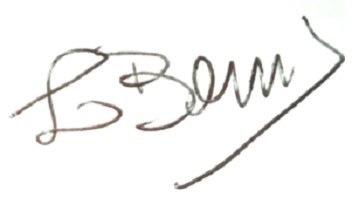 L Berry